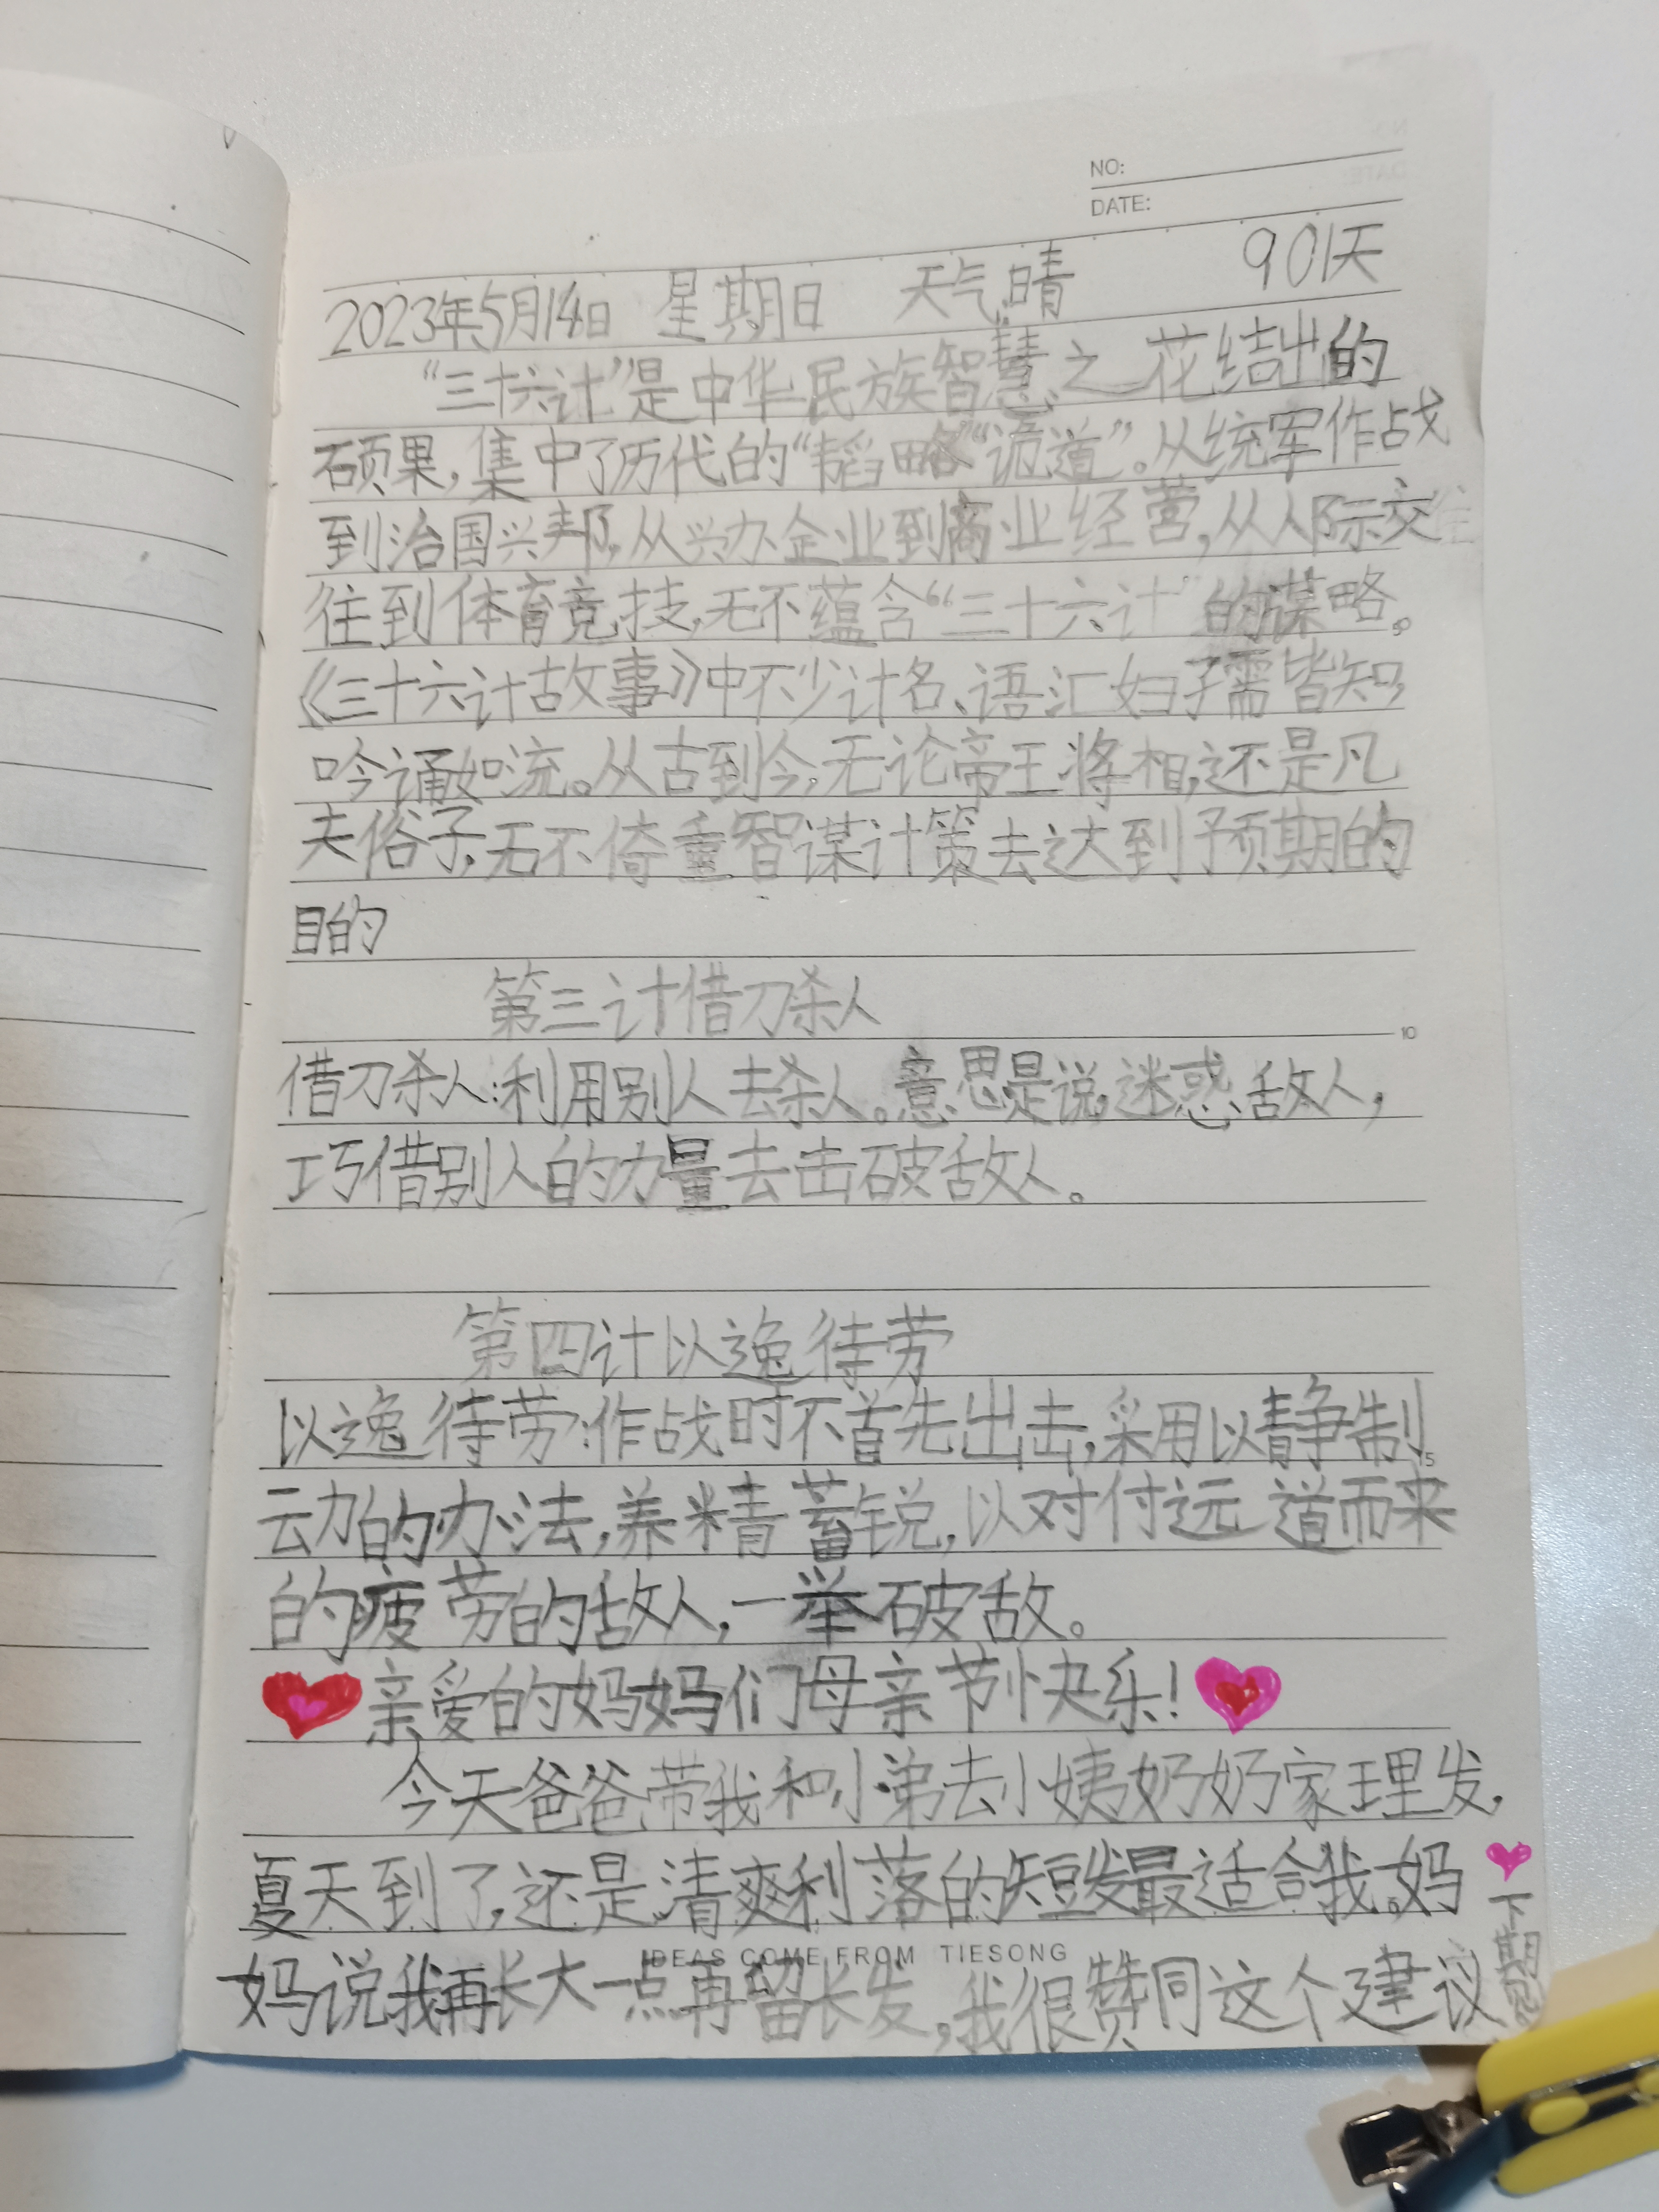 NO:
DATE:
2023年5月14日 星期日 天气晴 901天
“三十六计”是中华民族智慧之花结出的
硕果,集中了历代的“韬略”“诡道”。从统军作战
到治国兴邦,从兴办企业到商业经营,从人际交
往到体育竞技,无不蕴含“三十六计”的谋略。
《三十六计故事》中不少计名、语汇妇孺皆知,
吟诵如流。从古到今,无论帝王将相,还是凡
夫俗子,无不倚重智谋计策去达到预期的
目的
第三计借刀杀人
10
借刀杀人:利用别人去杀人。意思是说,迷惑敌人,
巧借别人的力量去击破敌人。
第四计以逸待劳
以逸待劳:作战时不首先出击,采用以静制
动的办法,养精蓄锐,以对付远道而来
的疲劳的敌人,一举破敌。
亲爱的妈妈们母亲节快乐!
今天爸爸带我和小弟去小姨奶奶家理发,
夏天到了,还是清爽利落的短发最适合我。妈
IDEAS COME FROM TIESONG
妈说我再长大一点再留长发,我很赞同这个建议
下期